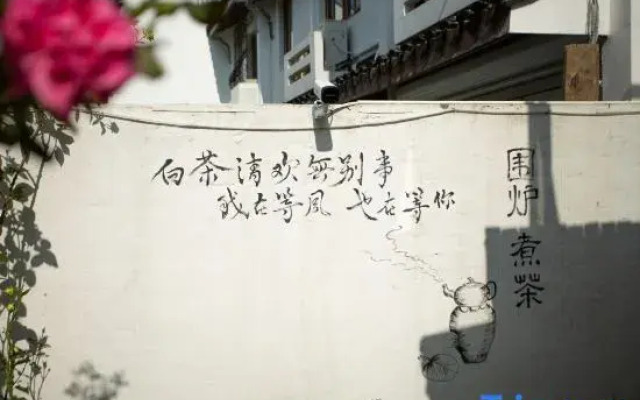 白茶清欢無别事
我在等风 也在等你
围炉
煮茶